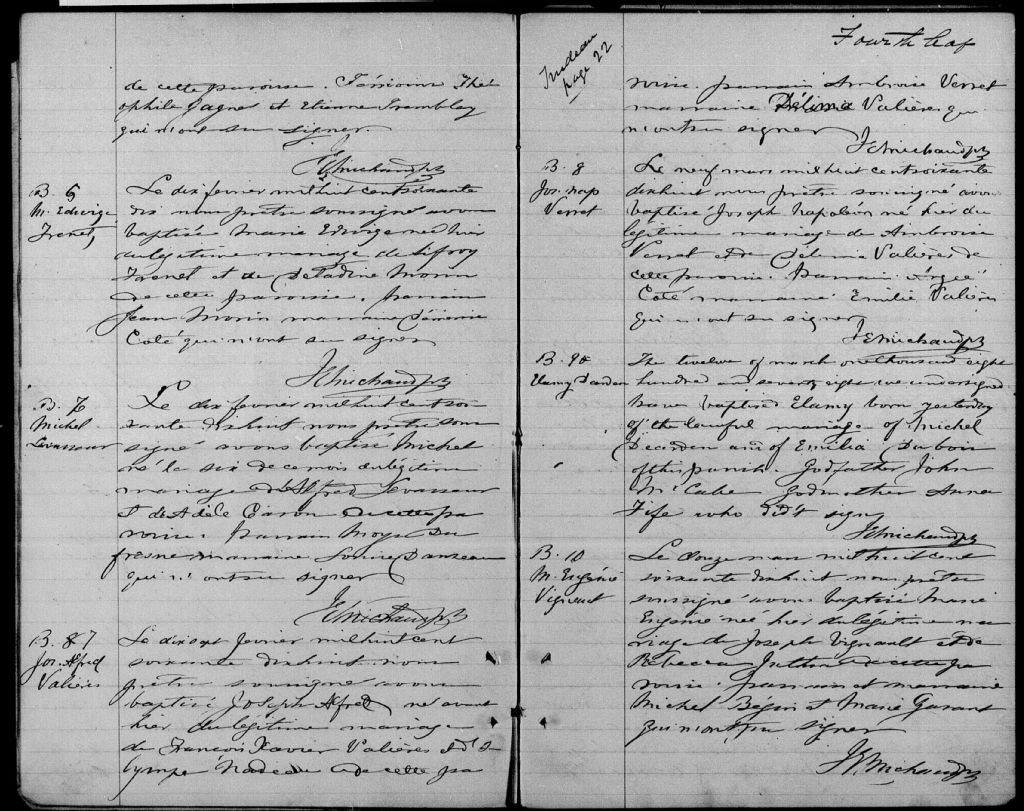 de cette paroisse. Témoins Thé
ophile Gagné et Etienne Tremblay
qui n'ont su signer.
J E Michaud ptr
B. 5
M. Edwige
Frenet,
Le dix février mil huit cent soixante
dix nous prêtre soussigné avons
baptisé Marie Edwige née hier
du légitime mariage de
Frenet et de Morin
de cette paroisse. parrain
Jean Morin marraine
Coté qui n'ont su signer
J E Michaud ptr
B. 6
Michel
Levasseur
Le dix février mil huit cent soi
xante dixhuit nous prêtre sous
signé avons baptisé Michel
né le six de ce mois du légitime
mariage d'Alfred Levasseur
et de Adèle Caron de cette pa
roisse. Parrain Moyse Du
fresne marraine Danseau
qui n'ont su signer
J E Michaud ptr
B. 8 7
Jos. Alfred
Valières
Le dixsept février mil huit cent
soixante dixhuit nous
prêtre soussigné avons
baptisé Joseph Alfred né avant
hier du légitime mariage
de François Xavier Valières et d'O
lympe Nadeau de cette pa
Trudeau
page 22
Fourth leaf
roisse. parrain Ambroise Verret
marraine Délima Valières qui
n'ont su signer
J E Michaud ptr
B. 8
Jos. Nap
Verret
Le neuf mars mil huit cent soixante
dixhuit nous prêtre soussigné avons
baptisé Joseph Napoléon né hier du
légitime mariage de Ambroise
Verret et de Delima Valières de
cette paroisse. Parrain
Coté marraine Emilie Valières
qui n'ont su signer
J E Michaud ptr
B. 9
Elamy Dearden
The twelve of march one thousand eight
hundred and seventy eight we undersigned
have baptised Elamy born yesterday
of the lawful mariage of Michel
Dearden and of Emilia Dubois
of the parish. Godfather John
McCabe Godmother Anna
Fife who did't sign
J E Michaud ptr
B. 10
M. Eugénie
Vigneault
Le douze mars mil huit cent
soixante dixhuit nous prêtre
soussigné avons baptisé Marie
Eugénie née hier du légitime ma
riage de Joseph Vignault et de
Rebecca de cette pa
roisse. parrain et marraine
Michel Begin et Marie Garant
qui n'ont pu signer
J E Michaud ptr